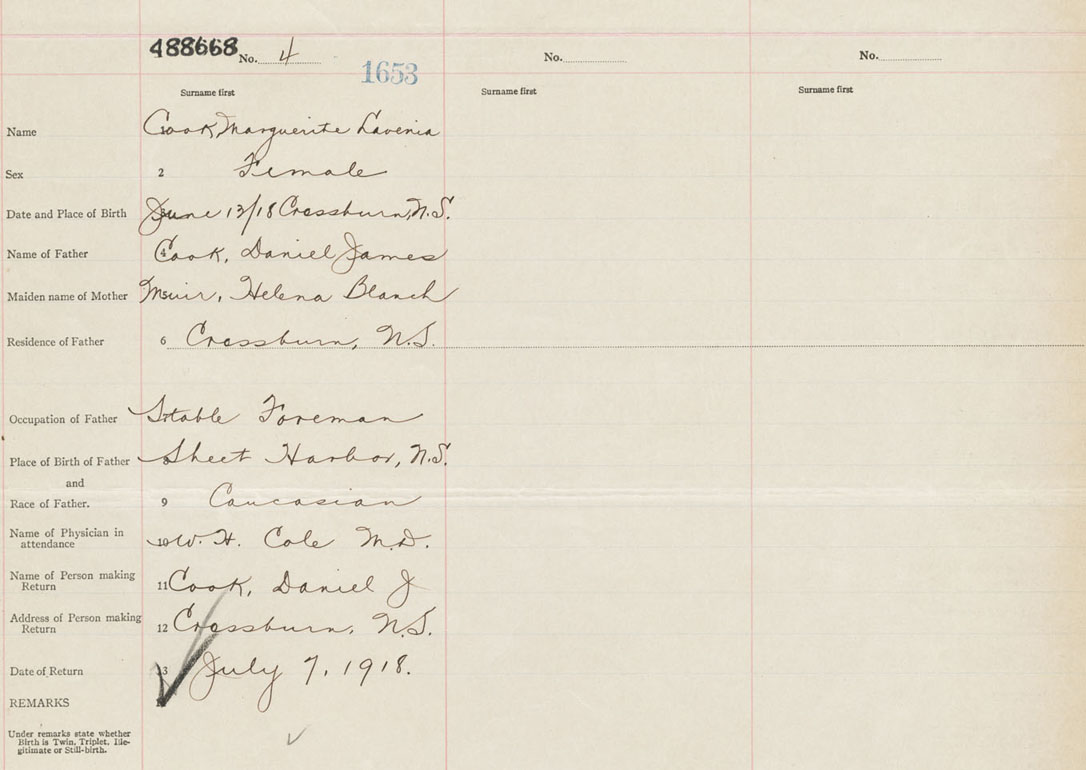 488668 No. 4 No. No.
1653
Surname first Surname first Surname first
Name Cook, Marguerite Lavenia
Sex 2 Female
Date and Place of Birth June 13/18 Crossburn, N.S.
Name of Father 4 Cook, Daniel James
Maiden name of Mother 5 Muir, Helena Blanch
Residence of Father 6 Crossburn, N.S.
Occupation of Father Stable Foreman
Place of Birth of Father Sheet Harbor, N.S.
and
Race of Father. 9 Caucasian
Name of Physician in
attendance 10 W. H. Cole M.D.
Name of Person making
Return 11 Cook, Daniel J
Address of Person making
Return 12 Crossburn, N.S.
Date of Return 13 July 7, 1918.
REMARKS
Under remarks state whether
Birth is Twin, Triplet, Ille-
gitimate or Still-birth.